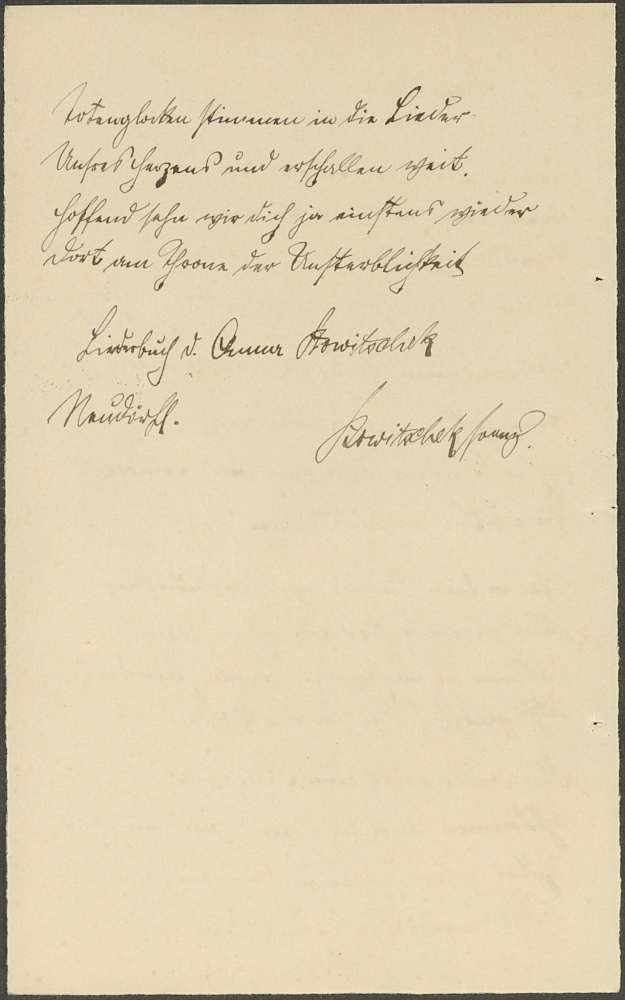 Totenglocken stimmen in die Lieder
Unsres Herzens und erschallen weit.
Hoffend sehn wir dich ja einstens wieder
Dort am Throne der Unsterblichkeit
Liederbuch d. Anna Kowitschek
Neudörfl.
Kowitschek Franz.